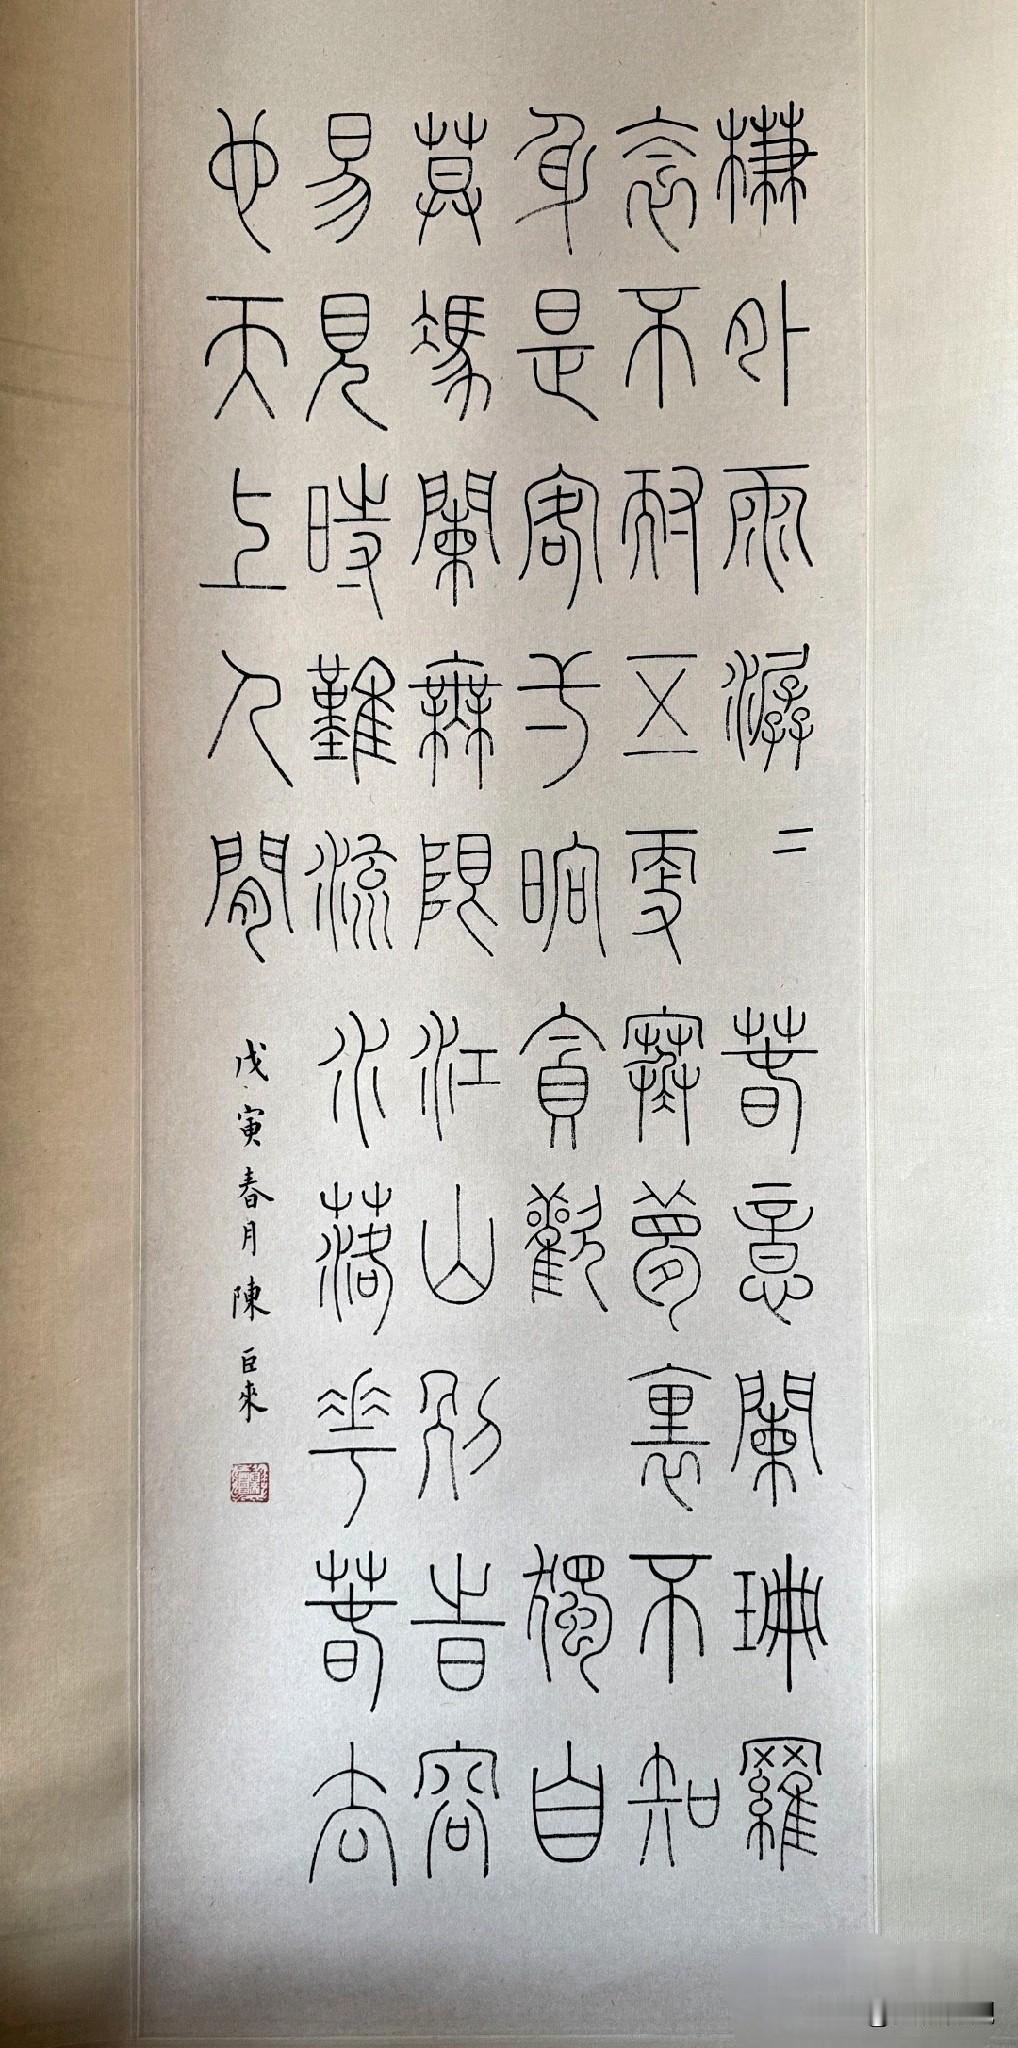 槏外雨潺二春意闌珊羅
衾不耐五更寒夢裏不知
身是客于晌貪歡獨自
莫馮闌無限江山別旹容
易見時難流水落花春去
也天上人間
戊寅春月陳巨來